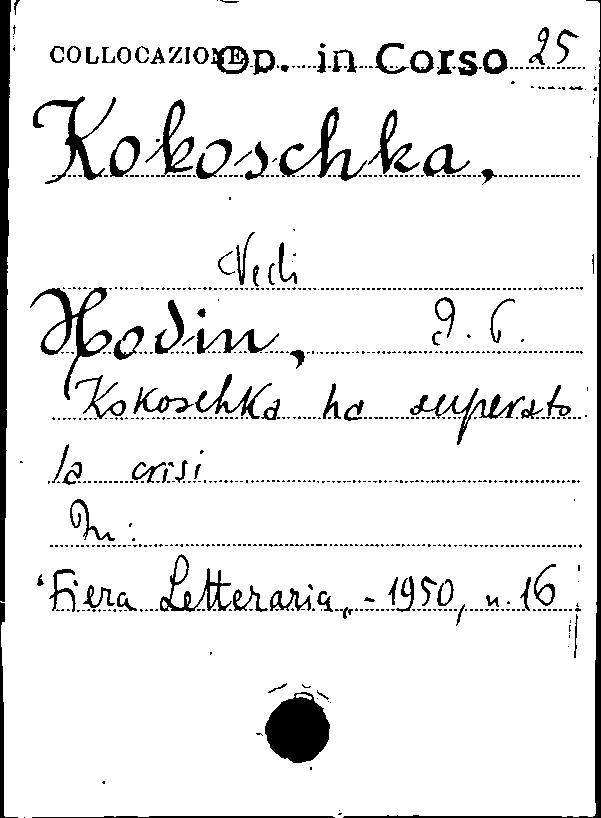 COLLOCAZIONE Op. in Corso 25
Kokoschka,
Vedi
Hodin, J. P.
Kokoschka ha superato
la crisi
In:
"Fiera Letteraria„ - 1950, n. 16